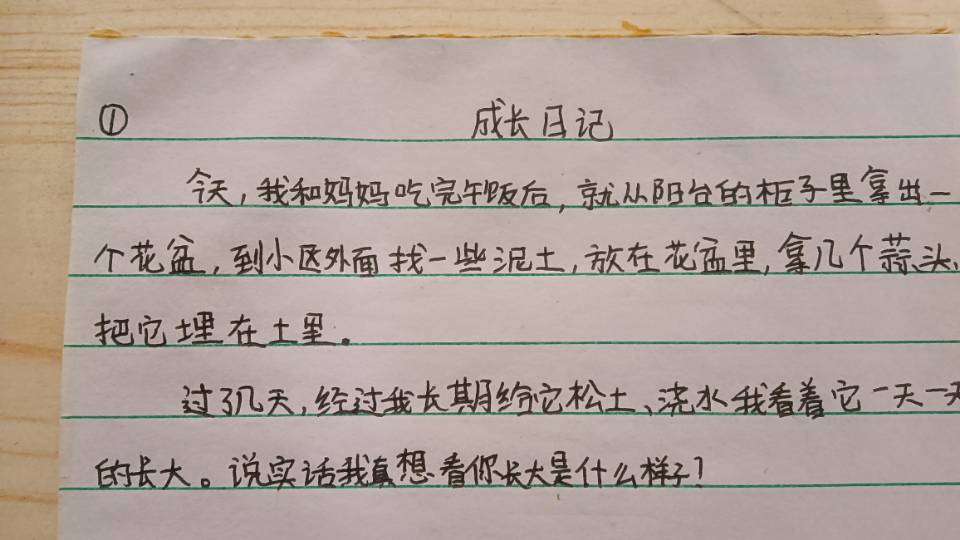 ① 成长日记
今天,我和妈妈吃完午饭后,就从阳台的柜子里拿出一
个花盆,到小区外面找一些泥土,放在花盆里,拿几个蒜头、
把它埋在土里。
过了几天,经过我长期给它松土、浇水我看着它一天一天
的长大。说实话我真想看你长大是什么样子?